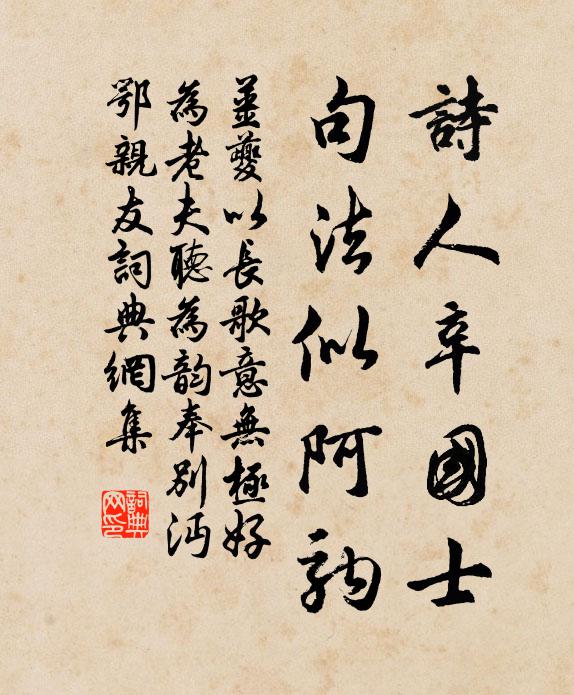 詩人辛國士
句法似阿駒
薑夔以長歌意無極好
為老夫聽為韵奉別沔
鄂親友詞典網集
詞典
网印